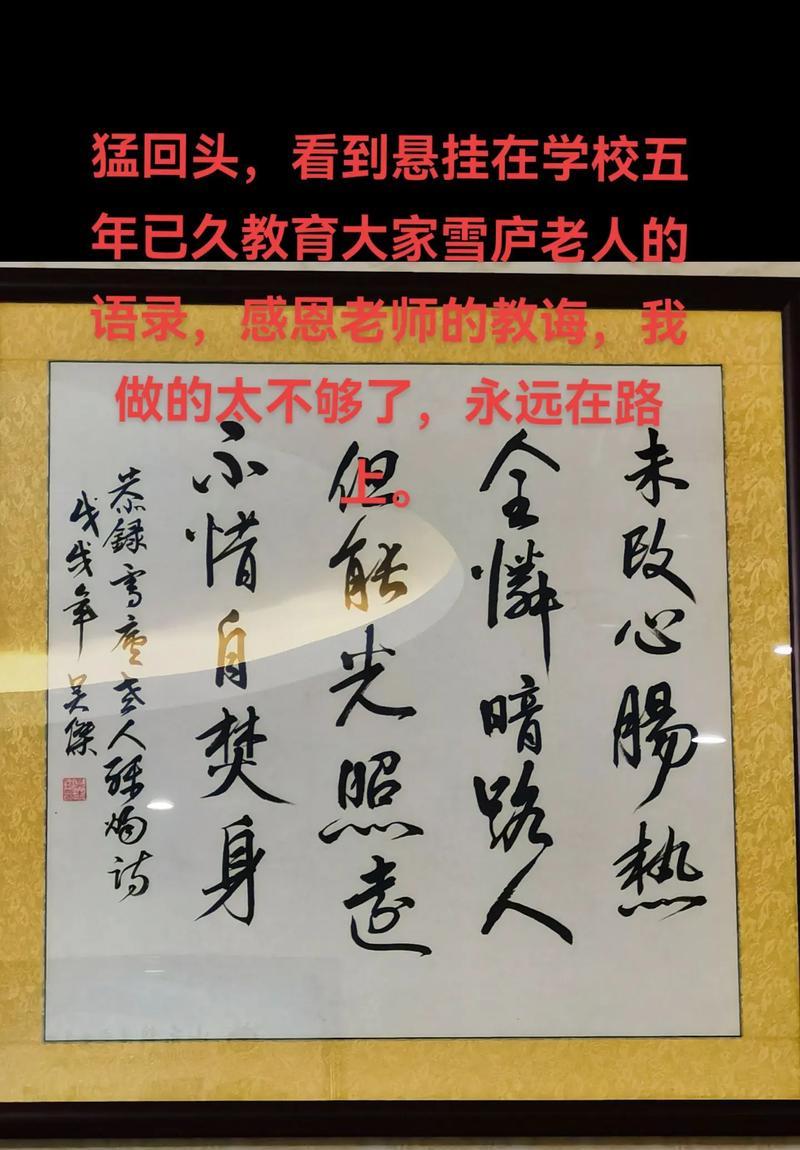 猛回头，看到悬挂在学校五
年已久教育大家雪庐老人的
语录，感恩老师的教诲，我
做的太不够了，永远在路
上。
未改心腸熱
全憐暗路人
但能光照遠
不惜自焚身
恭錄雪廬老人殘燭诗
戊戌年 吴傑